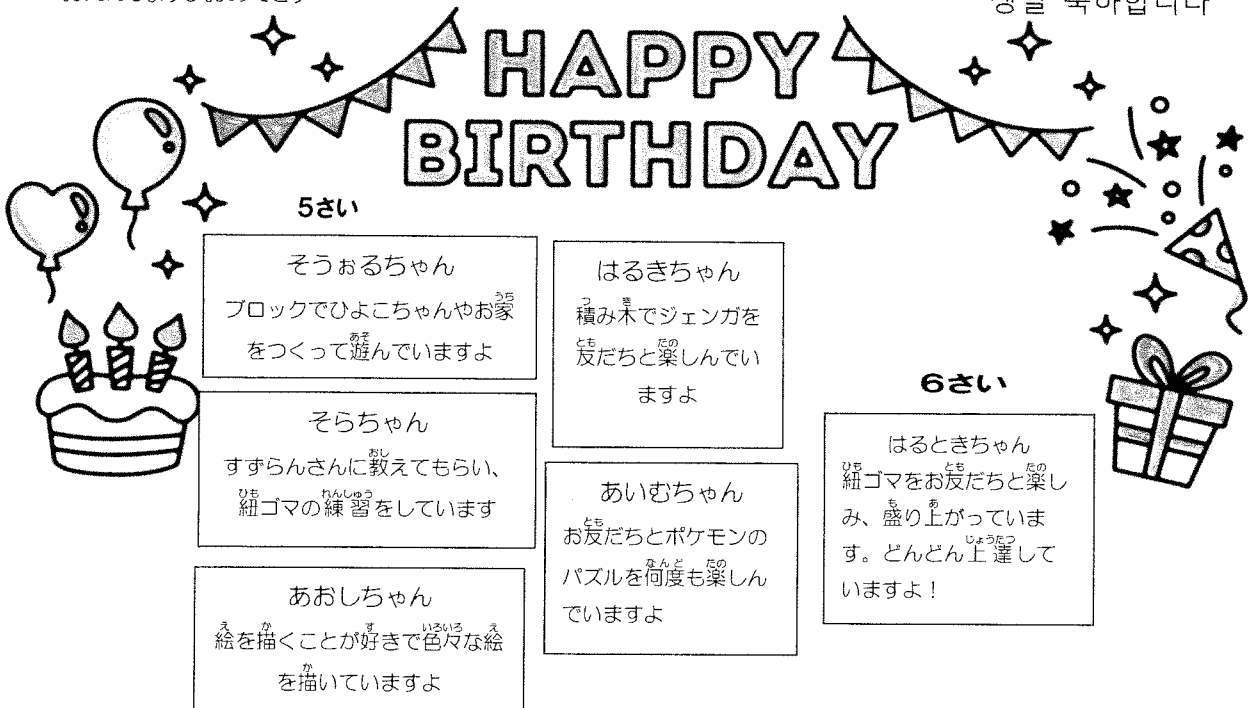 생일 축하합니다
HAPPY
BIRTHDAY
5さい
そうぉるちゃん
ブロックでひよこちゃんやお家
をつくって遊んでいますよ
そらちゃん
すずらんさんに教えてもらい、
紐ゴマの練習をしています
あおしちゃん
絵を描くことが好きで色々な絵
を描いていますよ
はるきちゃん
積み木でジェンガを
友だちと楽しんでい
ますよ
あいむちゃん
お友だちとポケモンの
パズルを何度も楽しん
でいますよ
6さい
はるときちゃん
紐ゴマをお友だちと楽し
み、盛り上がっていま
す。どんどん上達して
いますよ！